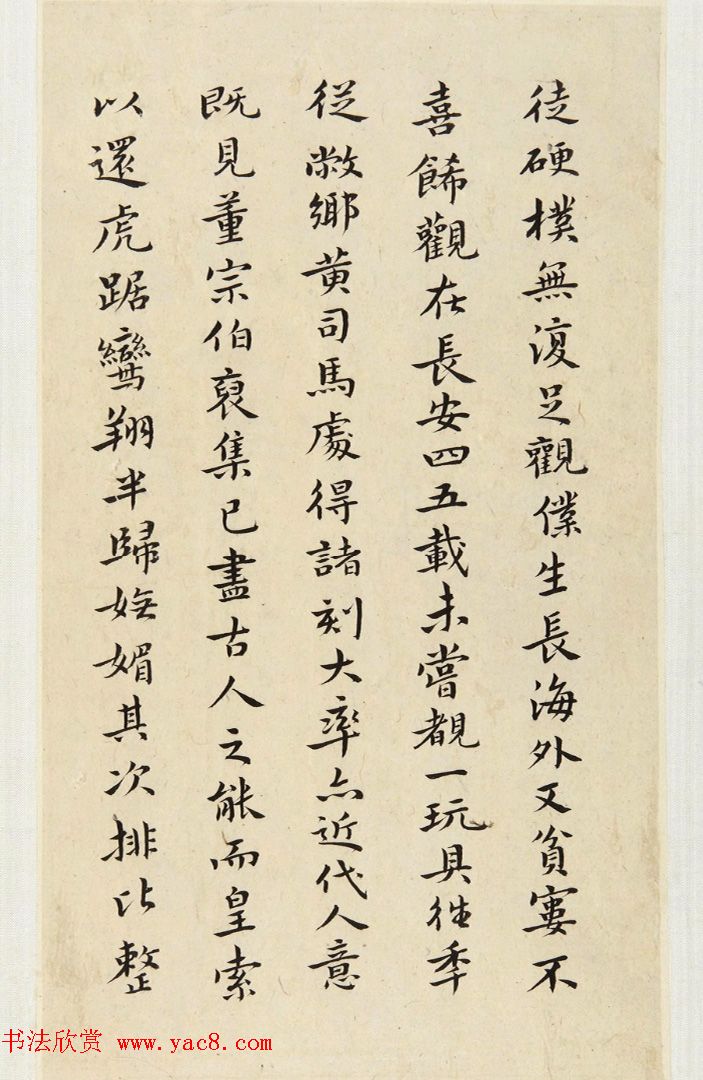 徒硬樸無復足觀僕生長海外又貧窶不
喜餙觀在長安四五載未嘗覩一玩具往季
從敝鄉黄司馬處得諸刻大率亦近代人意
既見董宗伯裒集已盡古人之能而皇索
以還虎踞鸞翔半歸嫵媚其次排比整
书法欣赏 www.yac8.com